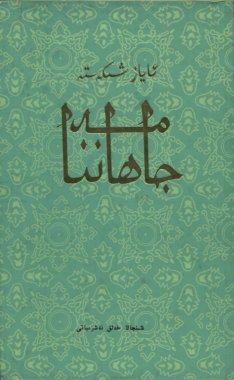 ئاياز شىكەستە
جاھاننامە
شىنجاڭ خەلق نەشرىياتى